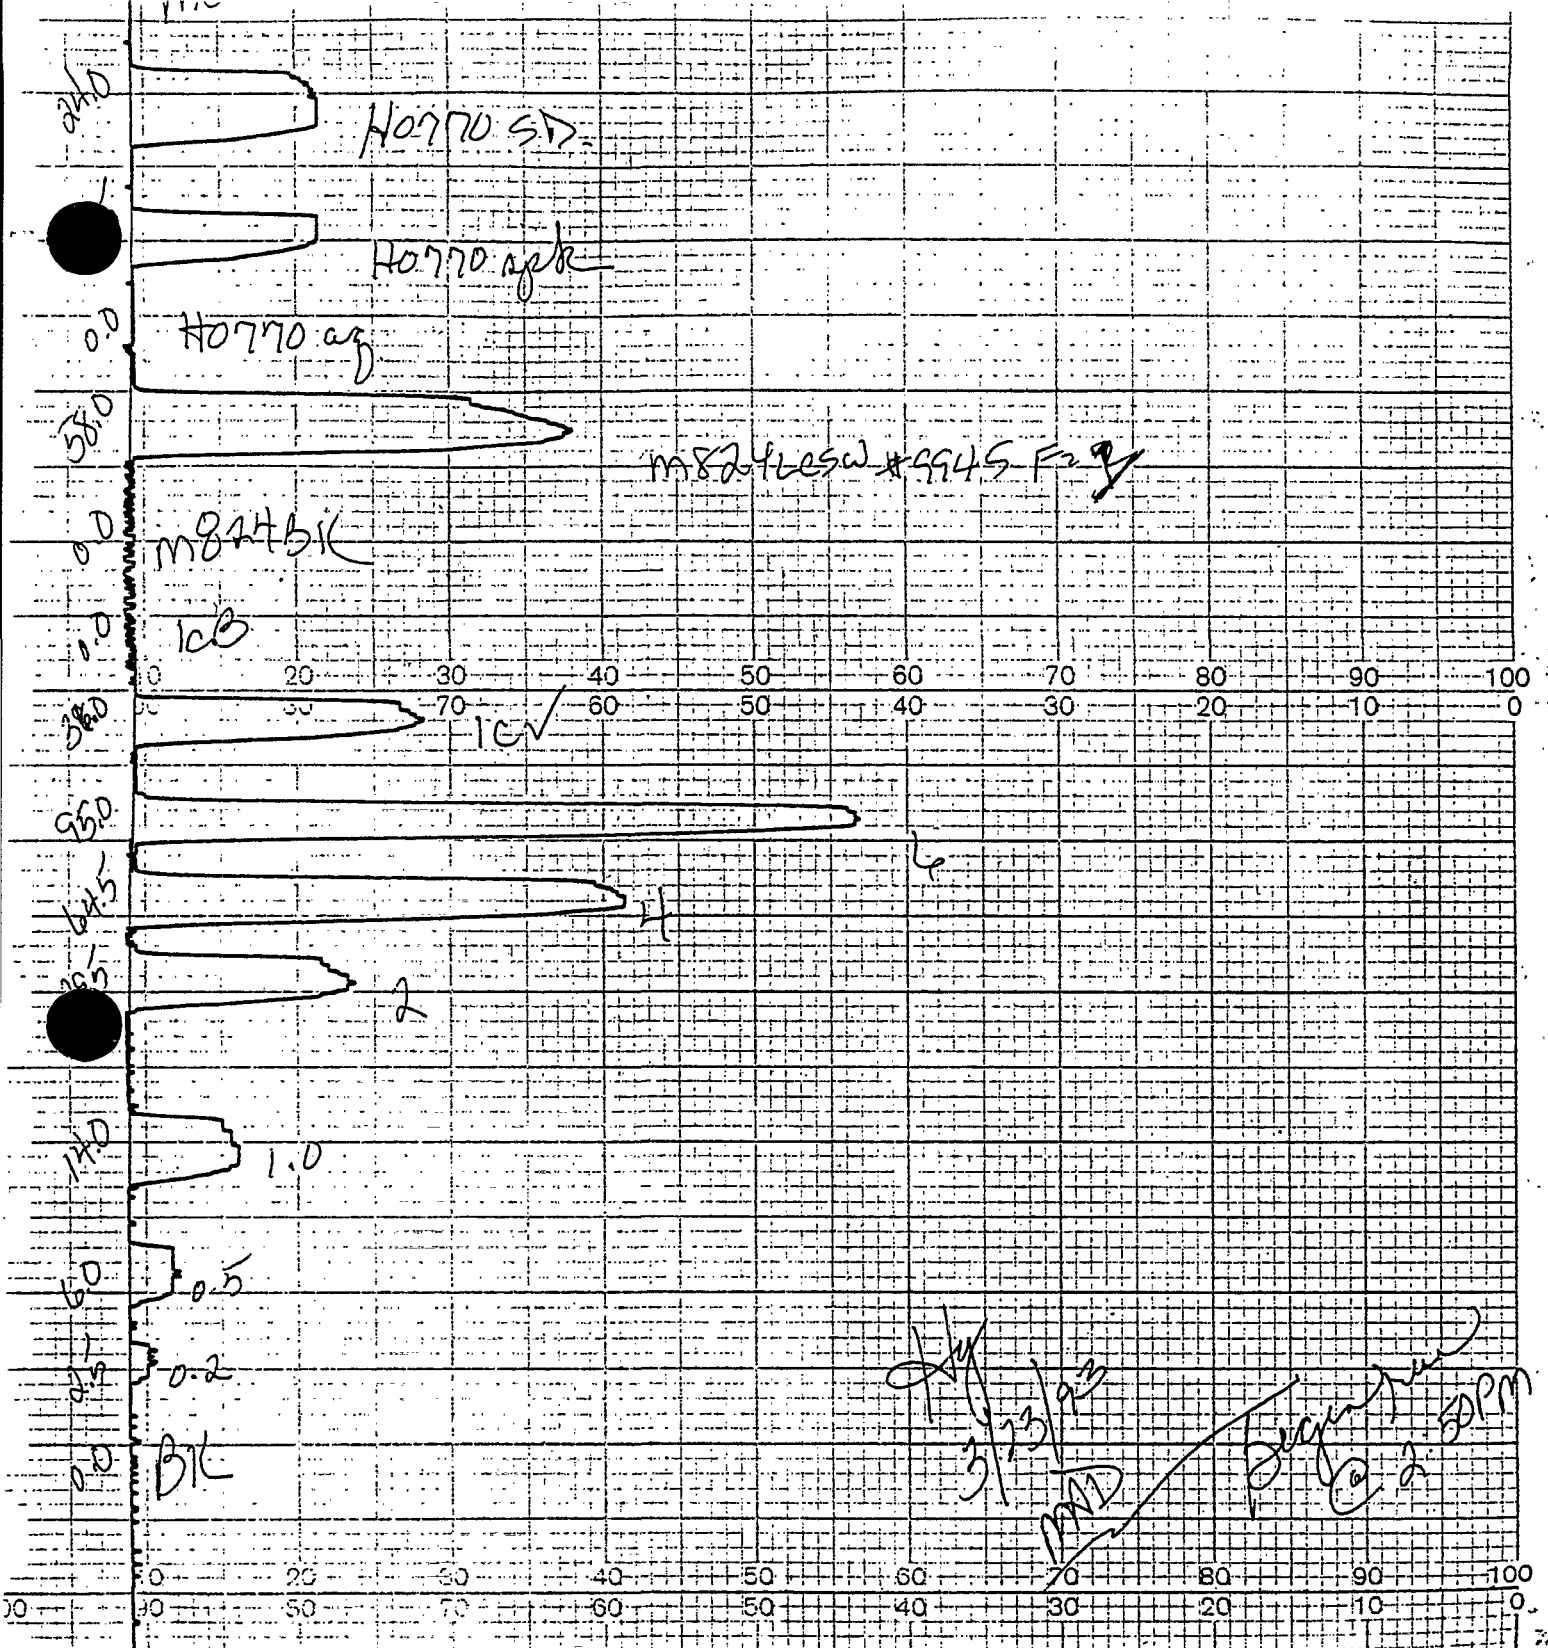 24.0
H0770 SD.
H0770 spk
0.0 H0770 aq
58.0
M824LCSW #9945 F=2
0.0 M824BK
0.0 ICB
10 20 30 40 50 60 70 80 90 100
90 80 70 60 50 40 30 20 10 0
38.0 ICV
95.0 6
64.5 4
2
14.0 1.0
6.0 0.5
2.5 0.2
0.0 BK
Hg
3/23/93
MAD
Begin run
@ 2:50PM
10 20 30 40 50 60 70 80 90 100
90 80 70 60 50 40 30 20 10 0